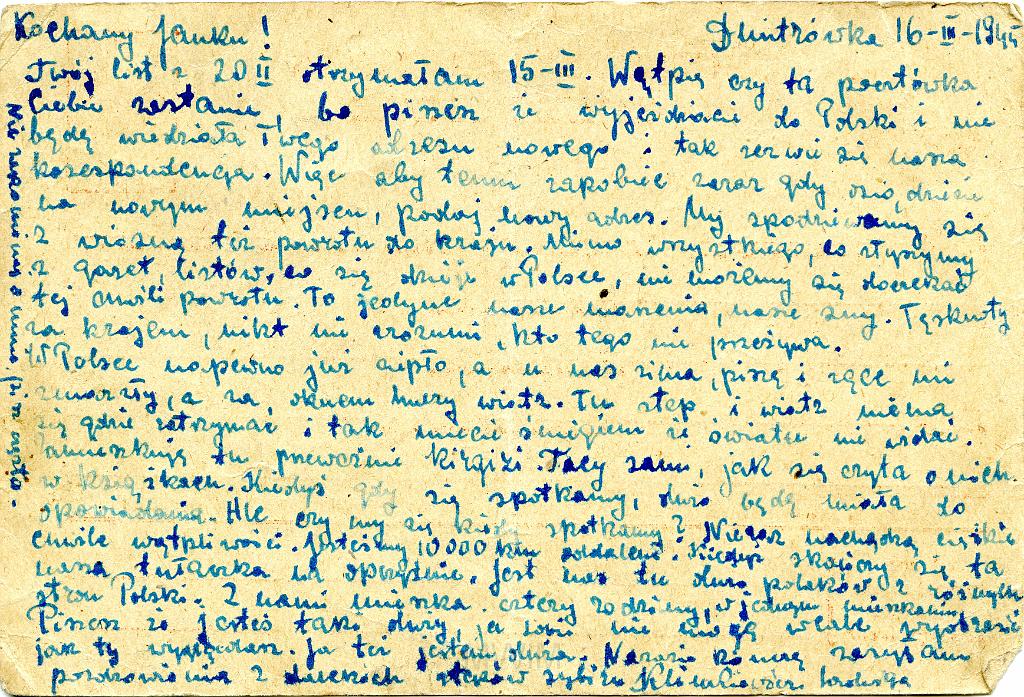 Kochany Janku! Dmitrówka 16-III-1945
Twój list z 20 II otrzymałam 15-III. Wątpię czy ta pocztówka
Ciebie zastanie, bo piszesz że wyjeżdżacie do Polski i nie
będę wiedziała Twego adresu nowego i tak zerwie się nasza
korespondencja. Więc aby temu zapobiec zaraz gdy osiądziesz
na nowym miejscu, podaj nowy adres. My spodziewamy się
z wiosną też powrotu do kraju. Mimo wszystkiego, co słyszymy
z gazet, listów, co się dzieje w Polsce, nie możemy się doczekać
tej chwili powrotu. To jedyne nasze marzenia, nasze sny. Tęsknoty
za krajem, nikt nie zrozumi, kto tego nie przeżywa.
W Polsce napewno już ciepło, a u nas zima, piszę i ręce mi
zmarzły, a za oknem huczy wiatr. Tu step i wiatr niema
się gdzie zatrzymać i tak miecie śniegiem że świata nie widać.
Zamieszkują tu przeważnie kirgizi. Tacy sami, jak się czyta o nich
w książkach. Kiedyś gdy się spotkamy, dużo będę miała do
opowiadania. Ale czy my się kiedy spotkamy? Nieraz nachodzą ciężkie
chwile wątpliwości. Jesteśmy 10000 km oddaleni. Kiedyż skończy się ta
nasza tułaczka na obczyźnie. Jest nas tu dużo polaków z różnych
stron Polski. Z nami mieszka cztery rodziny, w jednym mieszkaniu.
Piszesz że jesteś taki duży, ja sobie nie mogę wcale wyobrazić
jak ty wyglądasz. Ja też jestem duża. Narazie kończę zasyłam
pozdrowienia z dalekich stepów Sybiru Klimkiewicz Jadwiga
Nie zapominaj o mnie, pisz często.